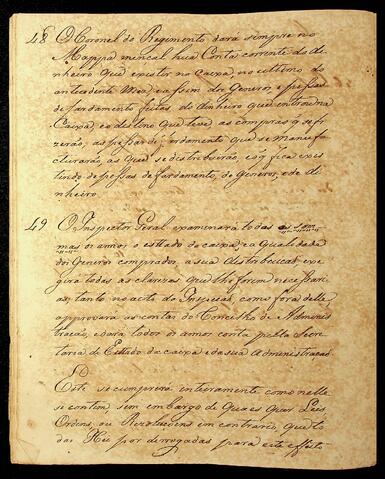 48 O Coronel do Regimento dará sempre no
Mappa mencal hua Conta corrente do di-
nheiro que existir na caixa, no ultimo do
antecedente Mez, e assim dos Generos, e pessas
de fardamento feitas, do dinheiro que entrou na
Caixa, e o destino que teve as compras q̃ se fi-
zerão, as pessas de fardamento que se manufa-
cturarão, as que se destribuirão, e o q̃ fica exis-
tindo de pessas de fardamento, de Generos, e de di-
nheiro.
49 O Inspector Geral examinará todas as som-
mas os annos o estado da caixa, e a qualidade
dos Generos comprados, a sua destribuicaõ exe-
girá todas as clarezas, que lhe forem necessari-
as, tanto no acto da Inspecaõ, como fora delle
approvará as contas do Concelho de Adminis-
tracaõ, e dará todos os annos conta pella Secre-
taria de Estado da caixa e da sua Administracaõ
Este se cumprirá inteiramente como nelle
se contem, sem embargo de quaes quer Leis,
Ordens, ou Rezoluçoens em contrario, que to-
das Hei por derrogadas para este effeito